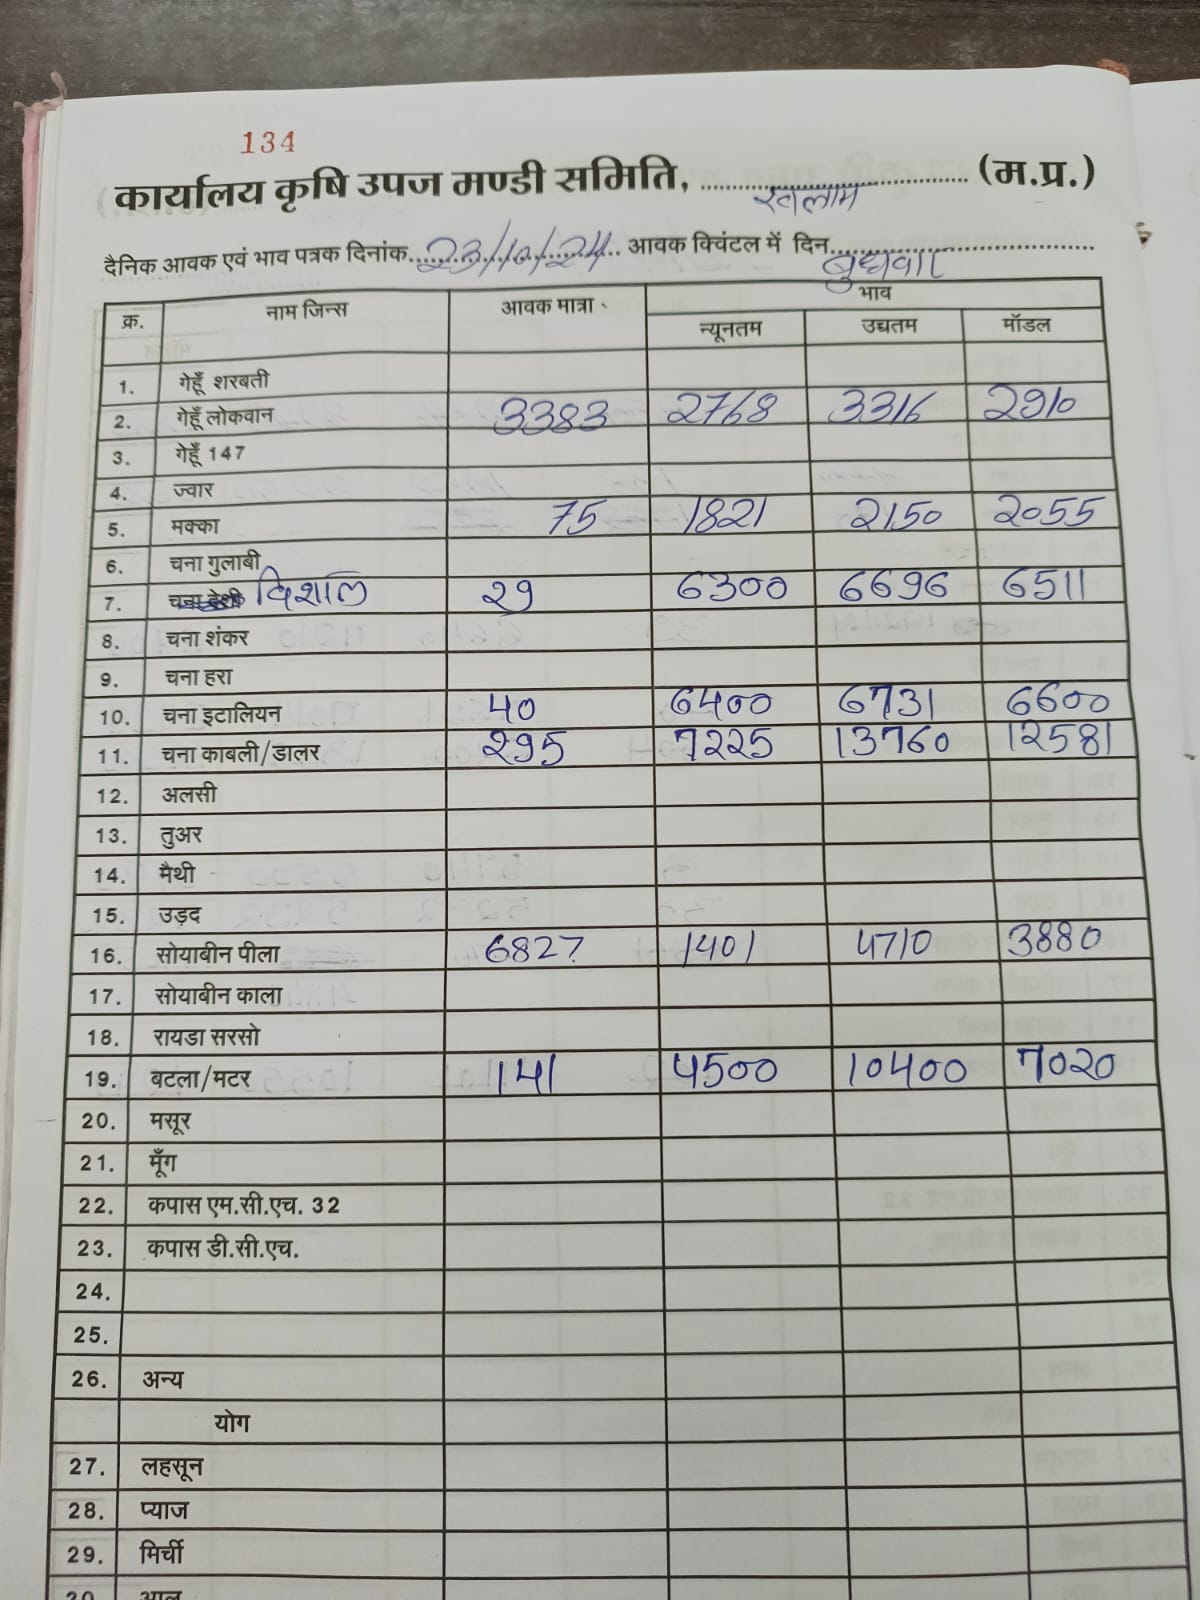 134
कार्यालय कृषि उपज मण्डी समिति, रतलाम (म.प्र.)
दैनिक आवक एवं भाव पत्रक दिनांक 23/10/24 आवक क्विंटल में दिन बुधवार
क्र. नाम जिन्स आवक मात्रा भाव
न्यूनतम उच्चतम मॉडल
1. गेहूँ शरबती
2. गेहूँ लोकवान 3383 2768 3316 2910
3. गेहूँ 147
4. ज्वार
5. मक्का 75 1821 2150 2055
6. चना गुलाबी
7. चना देशी विशाल 29 6300 6696 6511
8. चना शंकर
9. चना हरा
10. चना इटालियन 40 6400 6731 6600
11. चना काबली/डालर 295 7225 13760 12581
12. अलसी
13. तुअर
14. मैथी
15. उड़द
16. सोयाबीन पीला 6827 1401 4710 3880
17. सोयाबीन काला
18. रायडा सरसो
19. बटला/मटर 141 4500 10400 7020
20. मसूर
21. मूँग
22. कपास एम.सी.एच. 32
23. कपास डी.सी.एच.
24.
25.
26. अन्य
योग
27. लहसून
28. प्याज
29. मिर्ची
30. आलू